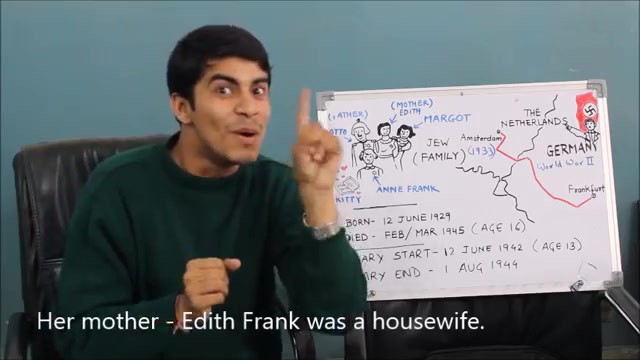 (FATHER)
OTTO
(MOTHER)
EDITH
MARGOT
JEW
(FAMILY)
ANNE FRANK
KITTY
THE
NETHERLANDS
Amsterdam
(1933)
GERMANY
World War II
Frankfurt
BORN- 12 JUNE 1929
DIED - FEB/MAR 1945 (AGE 16)
DIARY START- 12 JUNE 1942 (AGE 13)
DIARY END - 1 AUG 1944
Her mother - Edith Frank was a housewife.